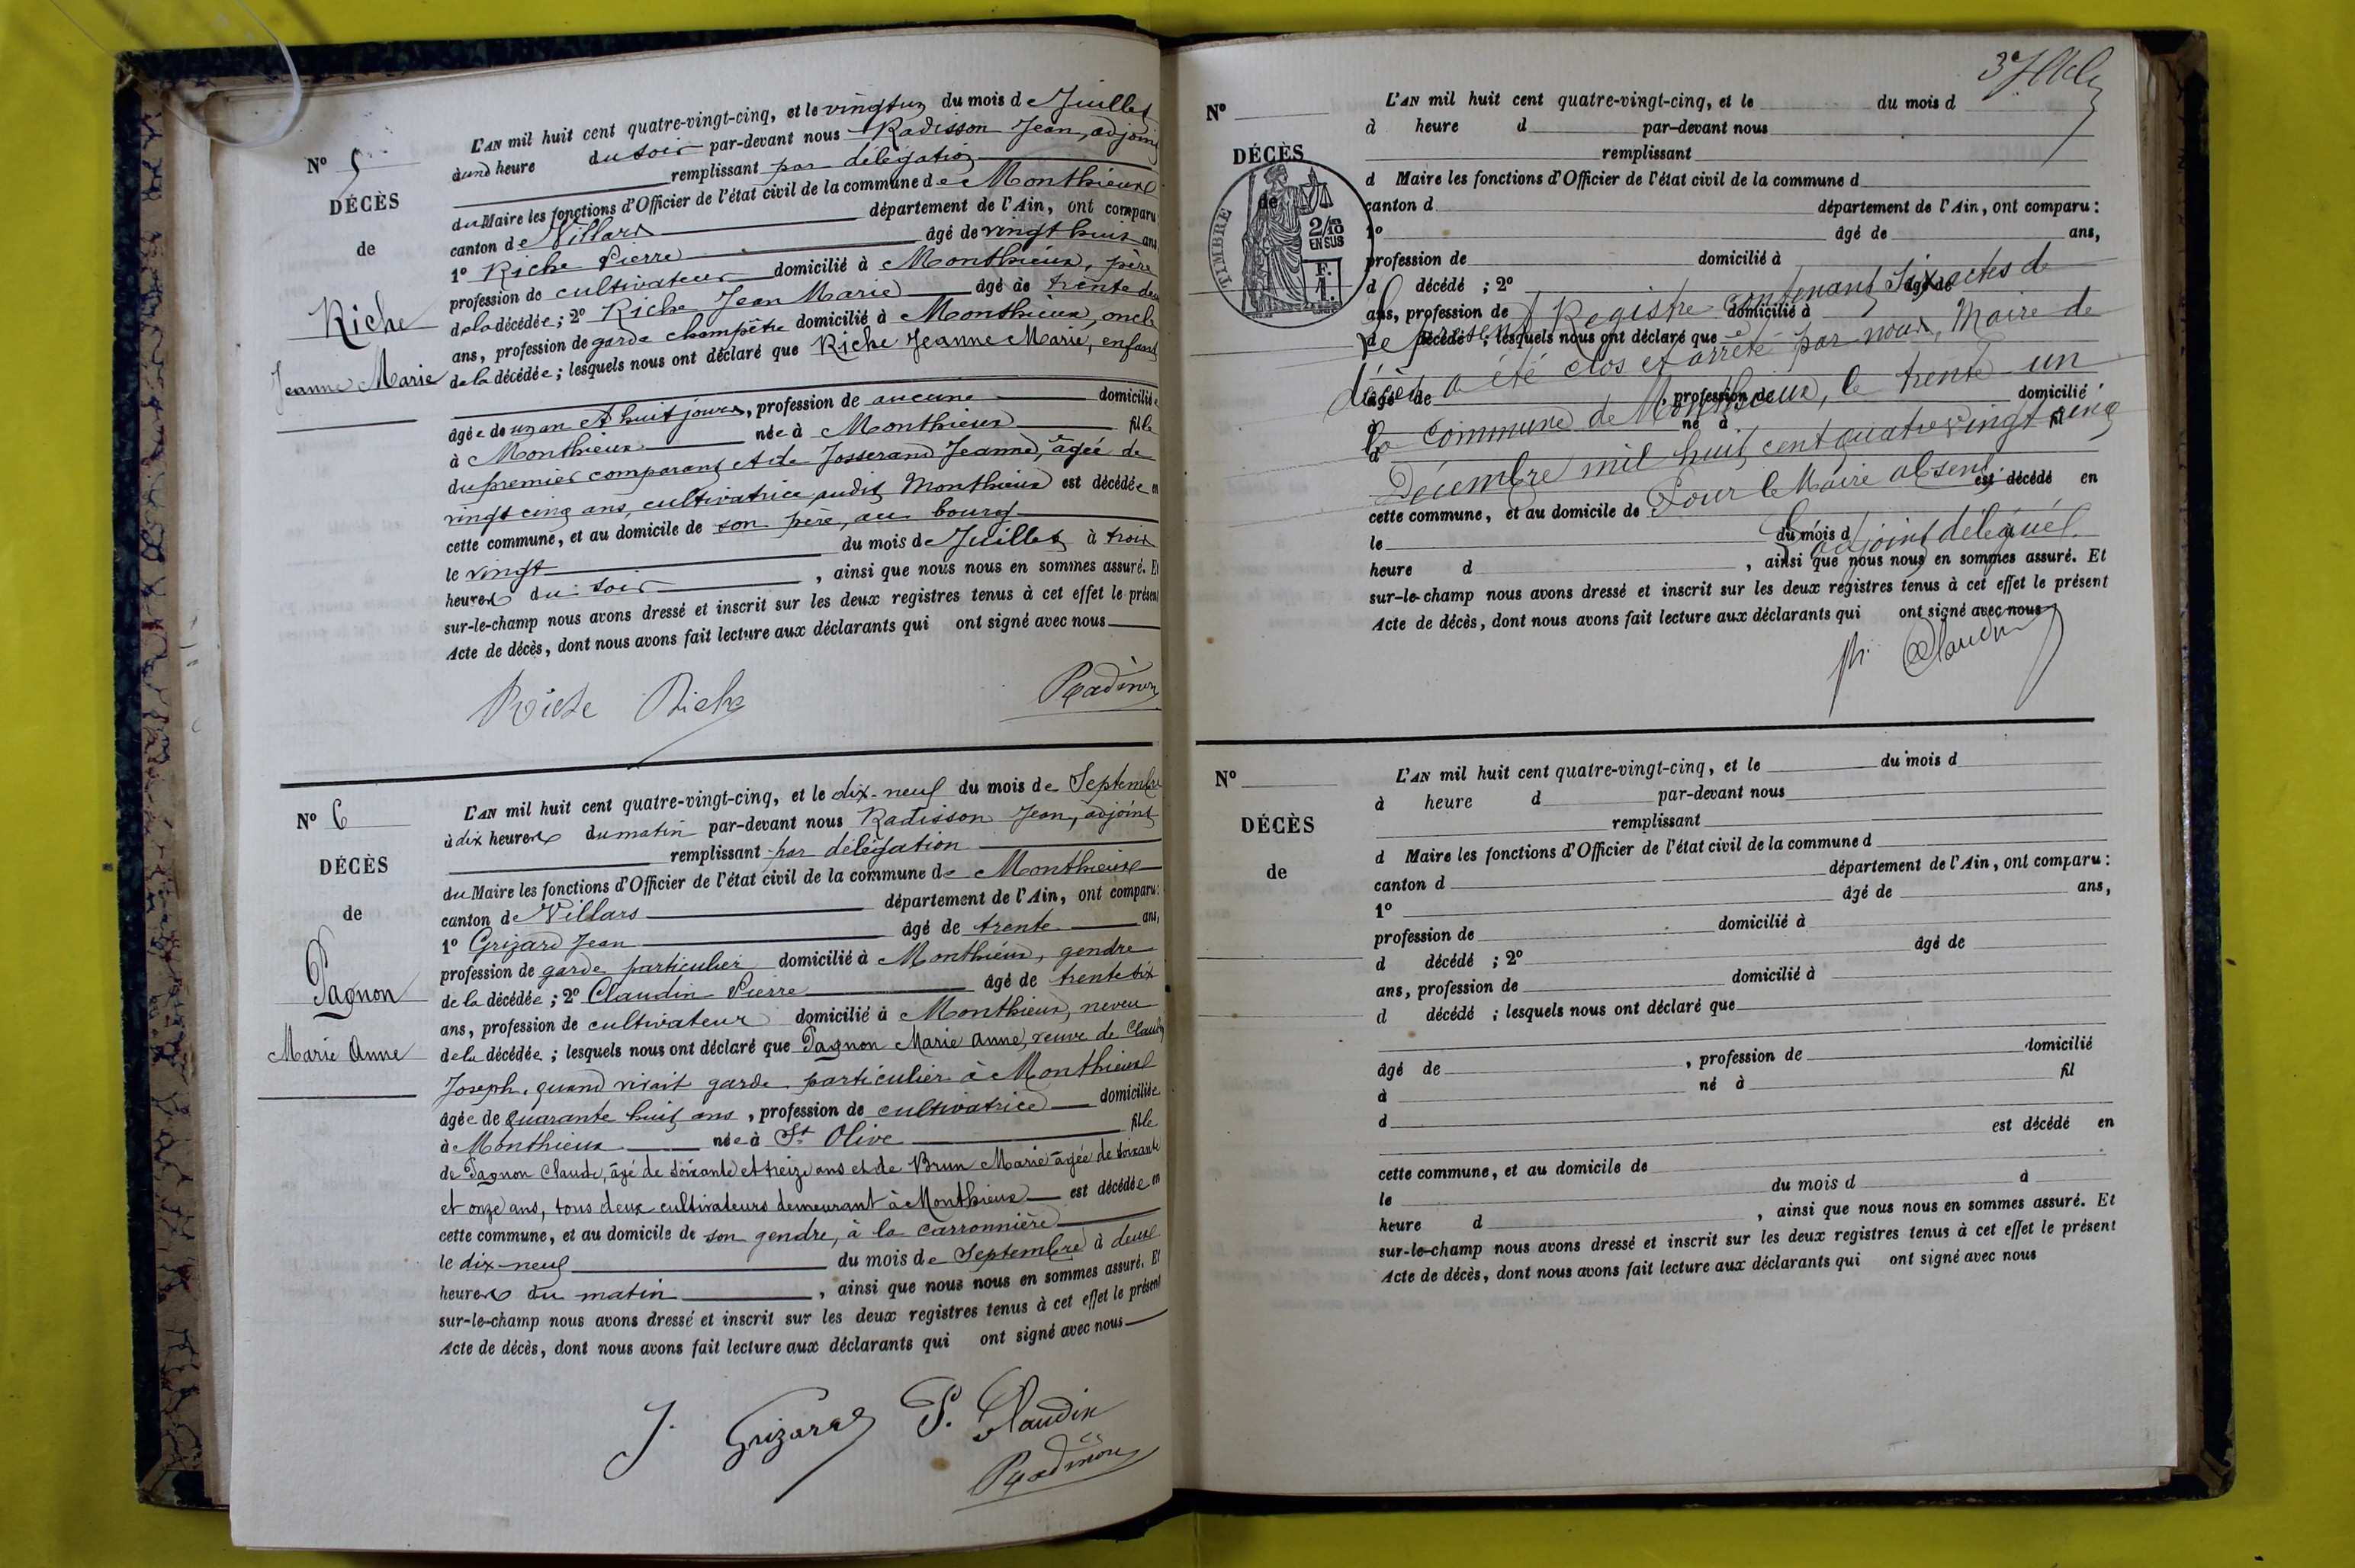 N° 5
DÉCÈS
de
Riche
Jeanne Marie
L'AN mil huit cent quatre-vingt-cinq, et le vingt un du mois de Juillet
à une heure du soir par-devant nous Radisson Jean, adjoint
remplissant par délégation
du Maire les fonctions d'Officier de l'état civil de la commune de Monthieux
canton de Villars département de l'Ain, ont comparu:
1° Riche Pierre âgé de vingt huit ans
profession de cultivateur domicilié à Monthieux, père
de la décédée; 2° Riche Jean Marie âgé de trente deux
ans, profession de garde champêtre domicilié à Monthieux, oncle
de la décédée; lesquels nous ont déclaré que Riche Jeanne Marie, enfant
âgée de un an et huit jours, profession de aucune domiciliée
à Monthieux née à Monthieux fille
du premier comparant et de Josserand Jeanne, âgée de
vingt cinq ans, cultivatrice audit Monthieux est décédée en
cette commune, et au domicile de son père, au bourg
le vingt du mois de Juillet à trois
heures du soir, ainsi que nous nous en sommes assuré. Et
sur-le-champ nous avons dressé et inscrit sur les deux registres tenus à cet effet le présent
Acte de décès, dont nous avons fait lecture aux déclarants qui ont signé avec nous
Riche Riche Radisson
N° 6
DÉCÈS
de
Pagnon
Marie Anne
L'AN mil huit cent quatre-vingt-cinq, et le dix-neuf du mois de Septembre
à dix heures du matin par-devant nous Radisson Jean, adjoint
remplissant par délégation
du Maire les fonctions d'Officier de l'état civil de la commune de Monthieux
canton de Villars département de l'Ain, ont comparu:
1° Grizard Jean âgé de trente ans,
profession de garde particulier domicilié à Monthieux, gendre
de la décédée; 2° Claudin Pierre âgé de trente six
ans, profession de cultivateur domicilié à Monthieux, neveu
de la décédée; lesquels nous ont déclaré que Pagnon Marie Anne, veuve de Claudin
Joseph, quand vivait garde particulier à Monthieux
âgée de quarante huit ans, profession de cultivatrice domiciliée
à Monthieux née à St Olive fille
de Pagnon Claude, âgé de soixante et treize ans et de Brun Marie âgée de soixante
et onze ans, tous deux cultivateurs demeurant à Monthieux est décédée en
cette commune, et au domicile de son gendre, à la carronnière
le dix-neuf du mois de Septembre à deux
heures du matin, ainsi que nous nous en sommes assuré. Et
sur-le-champ nous avons dressé et inscrit sur les deux registres tenus à cet effet le présent
Acte de décès, dont nous avons fait lecture aux déclarants qui ont signé avec nous
J. Grizard P. Claudin
Radisson
N°
DÉCÈS
de
TIMBRE
2/10
EN SUS
F.
1.
L'AN mil huit cent quatre-vingt-cinq, et le du mois d
à heure d par-devant nous
remplissant
d Maire les fonctions d'Officier de l'état civil de la commune d
canton d département de l'Ain, ont comparu:
1° âgé de ans,
profession de domicilié à
d décédé; 2° âgé de
ans, profession de domicilié à
d décédé; lesquels nous ont déclaré que
âgé de, profession de domicilié
à né à fil
d
est décédé en
cette commune, et au domicile de
le du mois d à
heure d, ainsi que nous nous en sommes assuré. Et
sur-le-champ nous avons dressé et inscrit sur les deux registres tenus à cet effet le présent
Acte de décès, dont nous avons fait lecture aux déclarants qui ont signé avec nous
Le présent Registre contenant Six actes de
décès a été clos et arrêté par nous, Maire de
la Commune de Monthieux, le trente un
Décembre mil huit cent quatre vingt cinq
Pour le Maire absent
L'adjoint délégué
Claudin
N°
DÉCÈS
de
L'AN mil huit cent quatre-vingt-cinq, et le du mois d
à heure d par-devant nous
remplissant
d Maire les fonctions d'Officier de l'état civil de la commune d
canton d département de l'Ain, ont comparu:
1° âgé de ans,
profession de domicilié à
d décédé; 2° âgé de
ans, profession de domicilié à
d décédé; lesquels nous ont déclaré que
âgé de, profession de domicilié
à né à fil
d
est décédé en
cette commune, et au domicile de
le du mois d à
heure d, ainsi que nous nous en sommes assuré. Et
sur-le-champ nous avons dressé et inscrit sur les deux registres tenus à cet effet le présent
Acte de décès, dont nous avons fait lecture aux déclarants qui ont signé avec nous